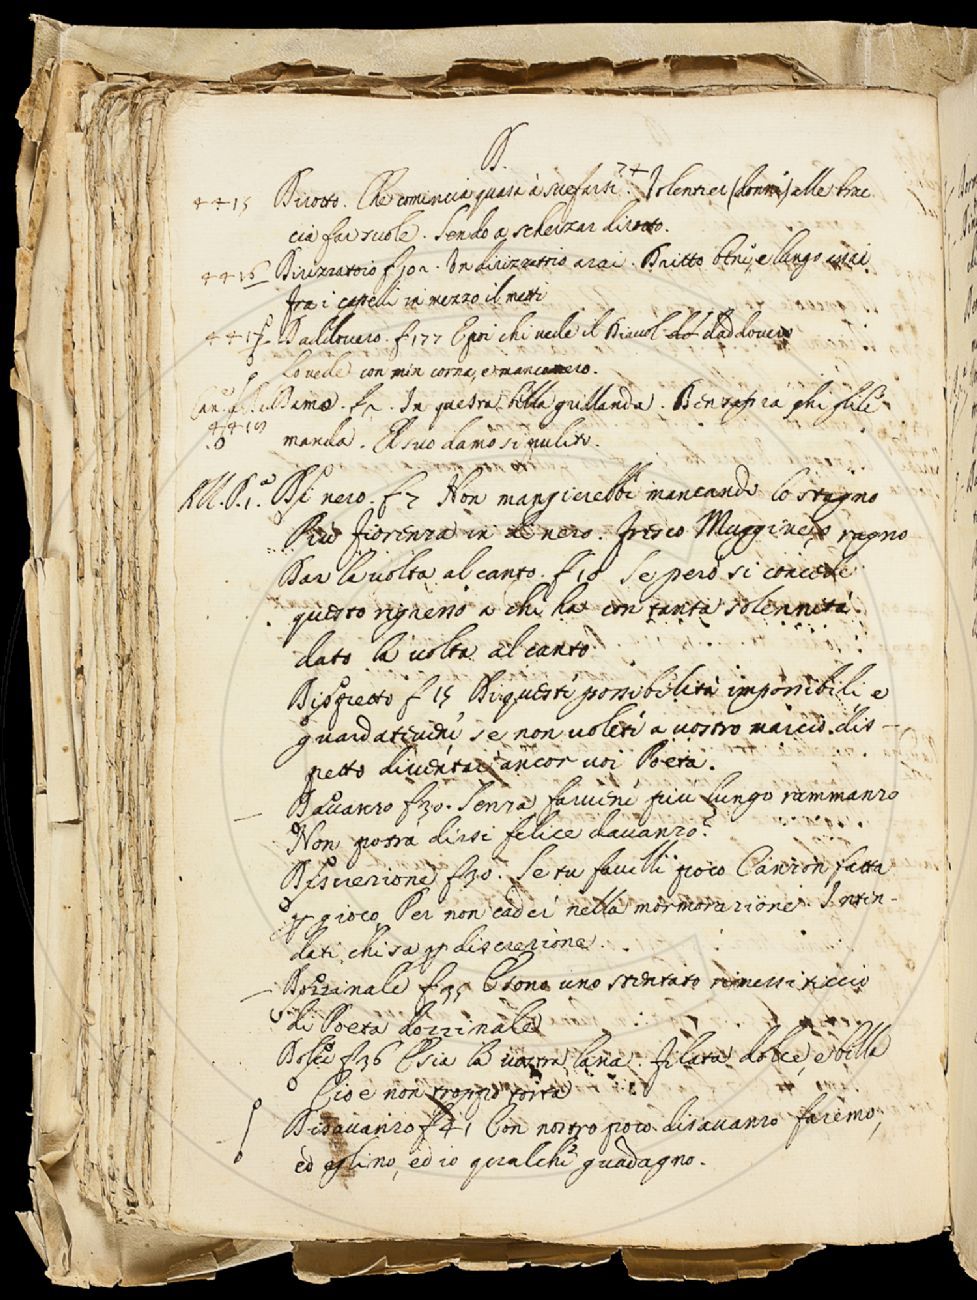 D.
4415 Dirotto. Che comincia quasi à suefarsi. Volentier (donna) alle brac
cia far suole. Sendo a scherzar dirotto.
4416 Dirizzatoio f. 
fra i capelli in mezzo il metti
4417 Daddovero. f 177 E poi chi vede il Diavol daddovero
Lo vede con men corna, e men nero.
Damo. f. In questa bella grillanda.
4419 manda. El suo damo si pulito.
All. D. 1.º Di nero. f 7 Non mangierebbe mancando lo stagno
Più Fiorenza in di nero. fresco Muggine, o ragno
Dar la uolta al canto. f 10 Se però si concede
questo rigresso a chi ha con tanta solennità
dato la uolta al canto
Dispetto f 15 Di queste possibilità impossibili e
guardateuene se non uolete a uostro marcio dis-
petto diuentar ancor uoi Poeta.
Dauanzo f 30. Senza faruene più lungo rammanzo
Non potrà dirsi felice dauanzo?
Discrezione f 30. Se tu fauelli poco Canzon fatta
p gioco Per non cader nella mormorazione Inten-
dati chi sa p discrezione.
Dozzinale f 35 E sono uno stentato rimessiticcio
di Poeta dozzinale
Dolce f 36 E sia la uostra lana. filata dolce, e bella
Cioe non troppo torta
Disauanzo f 41 Con nostro poco disauanzo faremo,
ed eglino, ed io qualche guadagno.